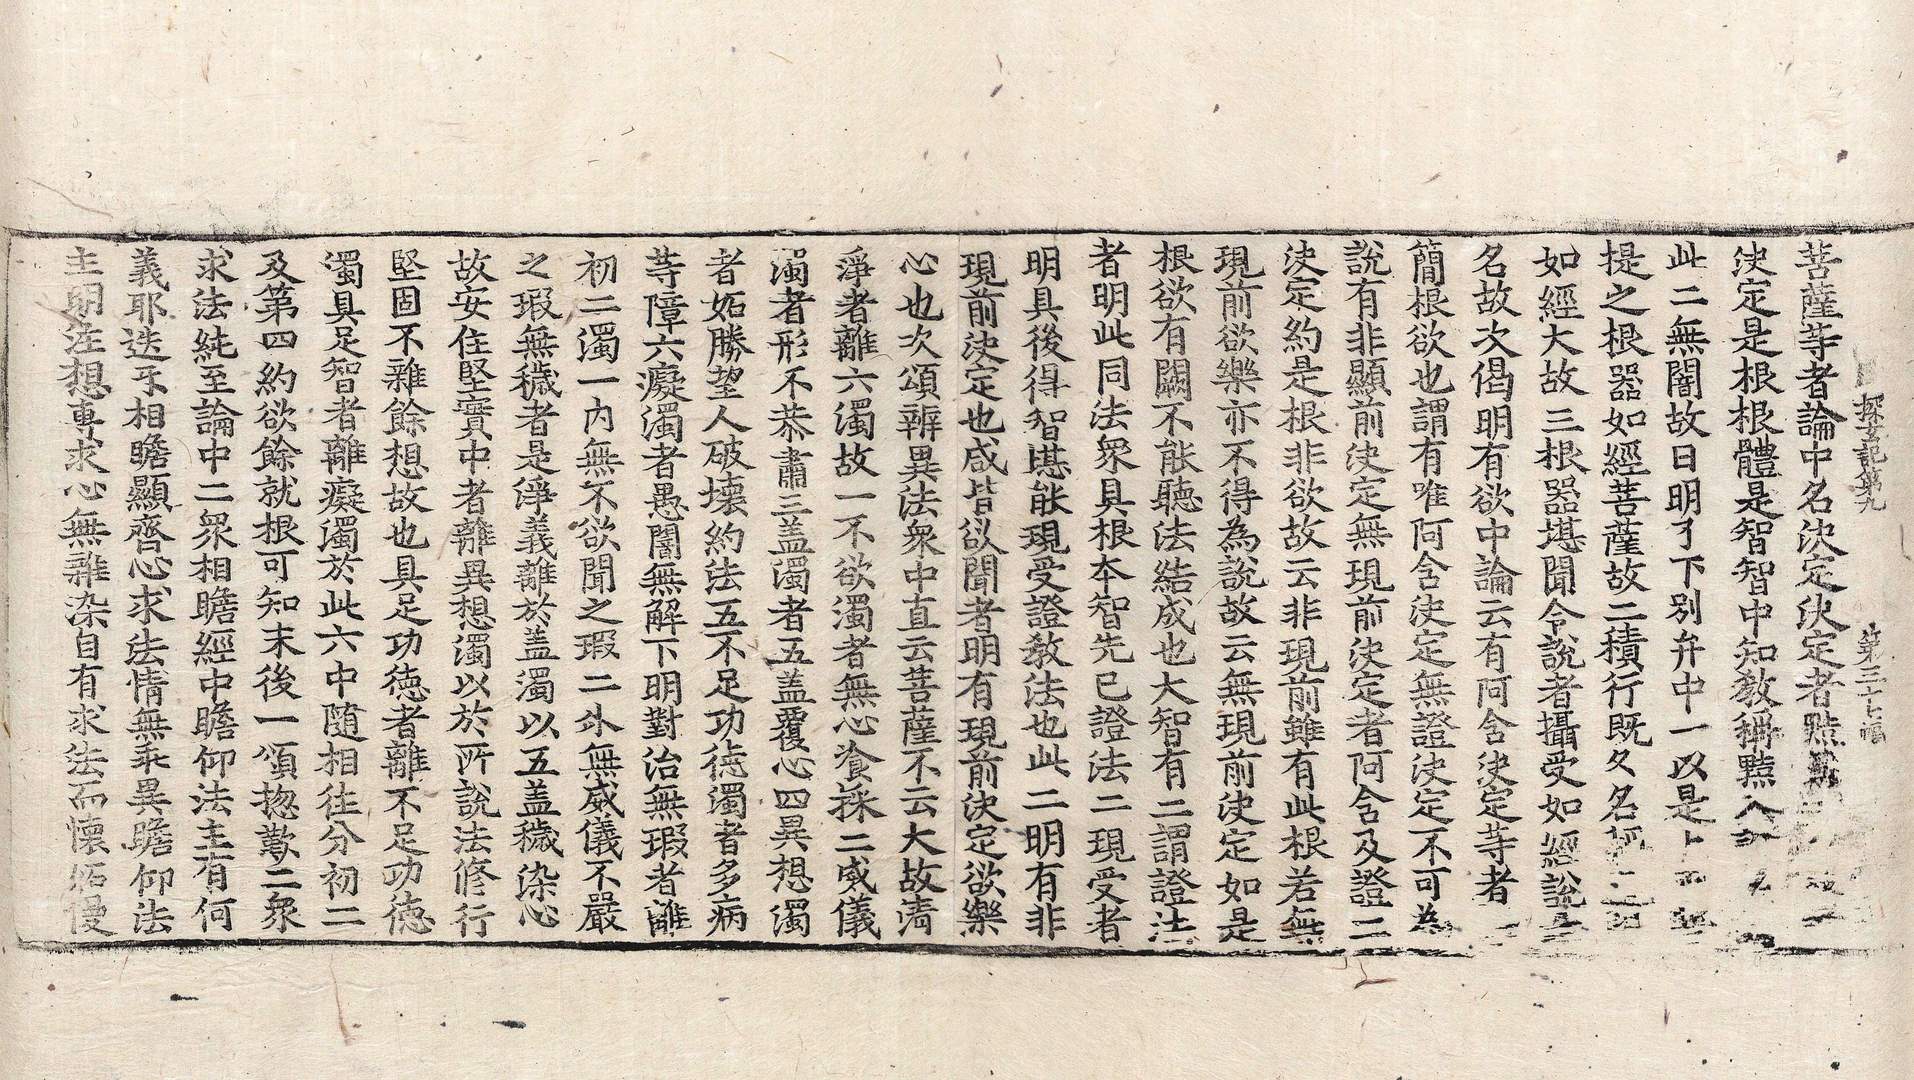 探玄記第九　第三十七幅
菩薩䓁者論中名決定決定者黠
決定是根根體是智智中知教稱黠人
此二無闇故曰明了下別弁中一以是
提之根器如經菩薩故二積行既久名
如經大故三根器堪聞令說者攝受如經說
名故次偈明有欲中論云有阿含決定等者
簡根欲也謂有唯阿含決定無證決定不可為
說有非顯前決定無現前決定者阿含及證二
決定約是根非欲故云非現前雖有此根若無
現前欲樂亦不得為說故云無現前決定如是
根欲有闕不能聽法結成也大智有二謂證法
者明此同法衆具根本智先已證法二現受者
明具後得智堪能現受證教法也此二明有非
現前決定也咸皆欲聞者明有現前決定欲樂
心也次頌辨異法衆中直云菩薩不云大故清
淨者離六濁故一不欲濁者無心飡採二威儀
濁者形不恭肅三盖濁者五盖覆心四異想濁
者妬勝望人破壞約法五不足功徳濁者多病
䓁障六癡濁者愚闇無解下明對治無瑕者離
初二濁一内無不欲聞之瑕二外無威儀不嚴
之瑕無穢者是淨義離於盖濁以五盖穢染心
故安住堅實中者離異想濁以於所說法修行
堅固不雜餘想故也具足功徳者離不足功徳
濁具足智者離癡濁於此六中隨相往分初二
及第四約欲餘就根可知末後一頌揔歎二衆
求法純至論中二衆相瞻經中瞻仰法主有何
義耶迭互相瞻顯齊心求法情無乖異瞻仰法
主明注想專求心無雜染自有求法而懐妬慢